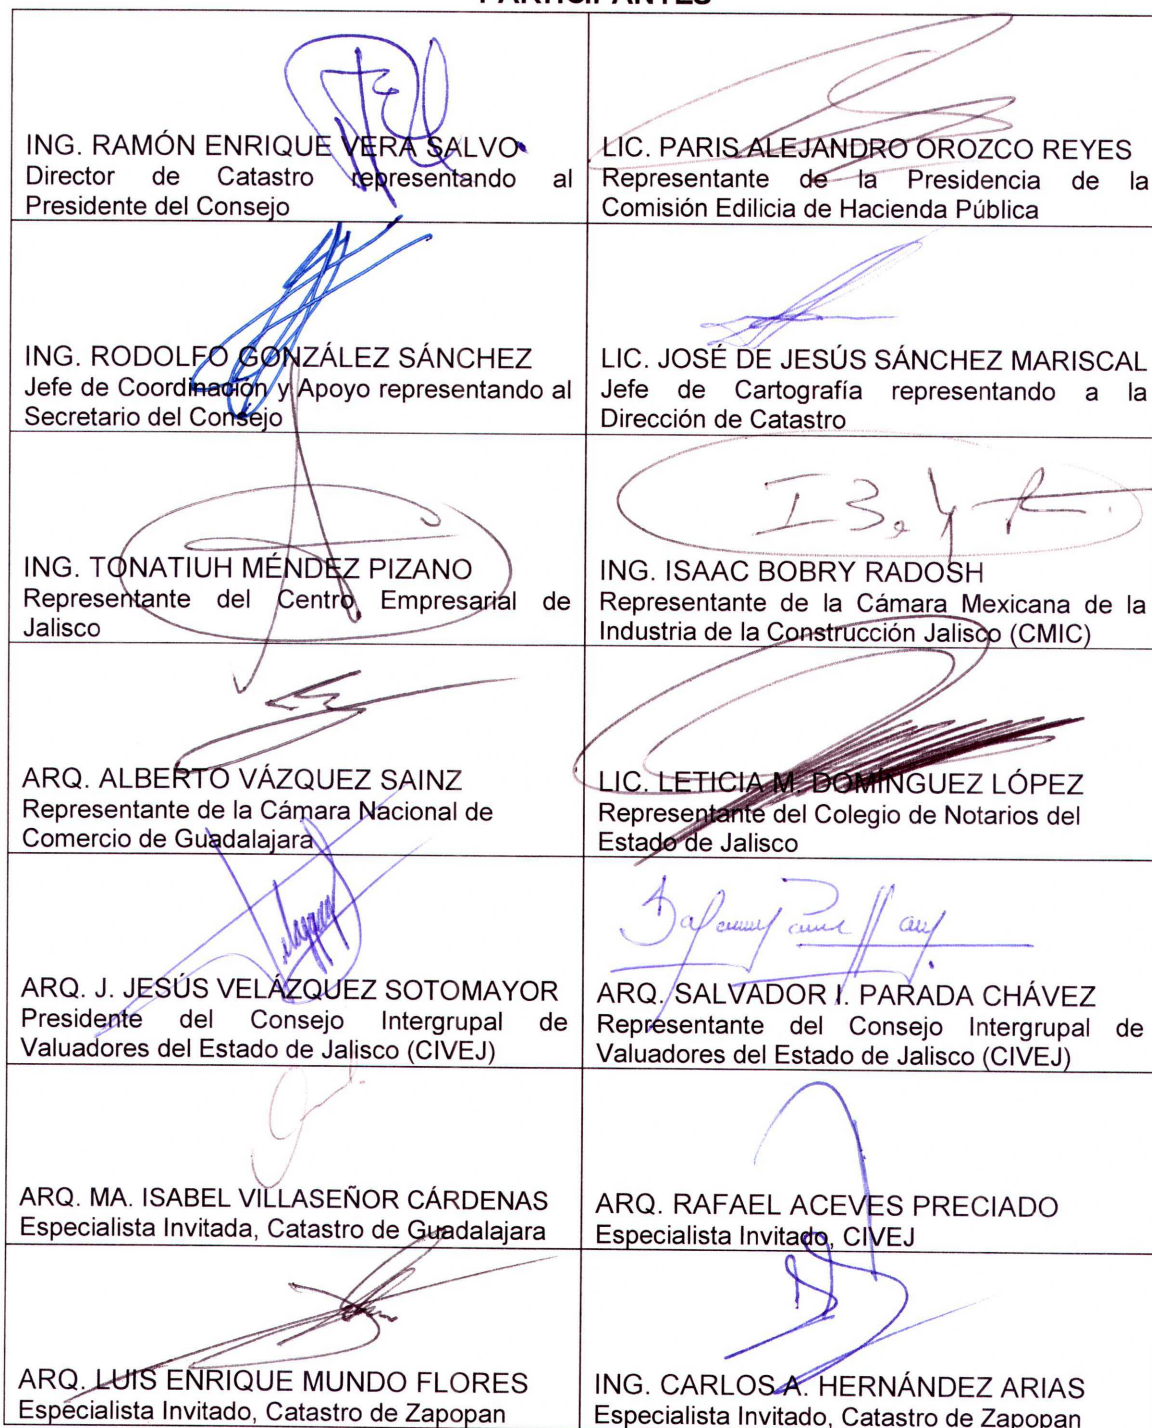 PARTICIPANTES
ING. RAMÓN ENRIQUE VERA SALVO
Director de Catastro representando al
Presidente del Consejo
LIC. PARIS ALEJANDRO OROZCO REYES
Representante de la Presidencia de la
Comisión Edilicia de Hacienda Pública
ING. RODOLFO GONZÁLEZ SÁNCHEZ
Jefe de Coordinación y Apoyo representando al
Secretario del Consejo
LIC. JOSÉ DE JESÚS SÁNCHEZ MARISCAL
Jefe de Cartografía representando a la
Dirección de Catastro
ING. TONATIUH MÉNDEZ PIZANO
Representante del Centro Empresarial de
Jalisco
ING. ISAAC BOBRY RADOSH
Representante de la Cámara Mexicana de la
Industria de la Construcción Jalisco (CMIC)
ARQ. ALBERTO VÁZQUEZ SAINZ
Representante de la Cámara Nacional de
Comercio de Guadalajara
LIC. LETICIA M. DOMÍNGUEZ LÓPEZ
Representante del Colegio de Notarios del
Estado de Jalisco
ARQ. J. JESÚS VELÁZQUEZ SOTOMAYOR
Presidente del Consejo Intergrupal de
Valuadores del Estado de Jalisco (CIVEJ)
ARQ. SALVADOR I. PARADA CHÁVEZ
Representante del Consejo Intergrupal de
Valuadores del Estado de Jalisco (CIVEJ)
ARQ. MA. ISABEL VILLASEÑOR CÁRDENAS
Especialista Invitada, Catastro de Guadalajara
ARQ. RAFAEL ACEVES PRECIADO
Especialista Invitado, CIVEJ
ARQ. LUIS ENRIQUE MUNDO FLORES
Especialista Invitado, Catastro de Zapopan
ING. CARLOS A. HERNÁNDEZ ARIAS
Especialista Invitado, Catastro de Zapopan